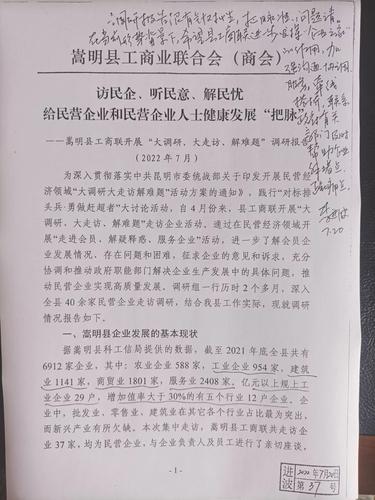 调研报告很有针对性，把脉准，问题清。
在当前形势背景下，希望县工商联进一步发挥
作用，加
强沟通协调
服务，牵线
搭桥，联系
有关
部门及时
帮助企业
7.20
嵩明县工商业联合会（商会）
访民企、听民意、解民忧
给民营企业和民营企业人士健康发展“把脉”
——嵩明县工商联开展“大调研、大走访、解难题”调研报告
（2022年7月）
为深入贯彻落实中共昆明市委统战部关于印发开展民营
经济领域“大调研大走访解难题”活动方案的通知》，践行“对标排
头兵·勇做赶超者”大讨论活动，自4月份来，县工商联开展“大
调研、大走访、解难题”走访企业活动。通过在民营经济领域开
展“走进会员、解疑释惑、服务企业”活动，进一步了解会员企
业发展情况、存在问题和困难，征求企业的意见和诉求，充分
协调和推动政府职能部门解决企业生产发展中的具体问题，推
动民营企业实现高质量发展。调研组一行历时2个多月，深入
全县40余家民营企业走访调研，结合我县工作实际，现就调研
情况报告如下。
一、嵩明县企业发展的基本现状
据嵩明县科工信局提供的数据，截至2021年底全县共有
6912家企业，其中：农业企业588家，工业企业954家，建筑
业1141家，商贸业1801家，服务业2408家。亿元以上规上工
业企业29户，增加值率大于30%的有五个行业12户企业。企
业中，批发业、零售业、建筑业在其它各个行业占比最为突出，
而新兴产业有所欠缺。本次集中走访，嵩明县工商联共走访企
业37家，均为民营企业，与企业负责人及员工进行了亲切座谈，
- 1 -
进波
2022年7月20日
第37号